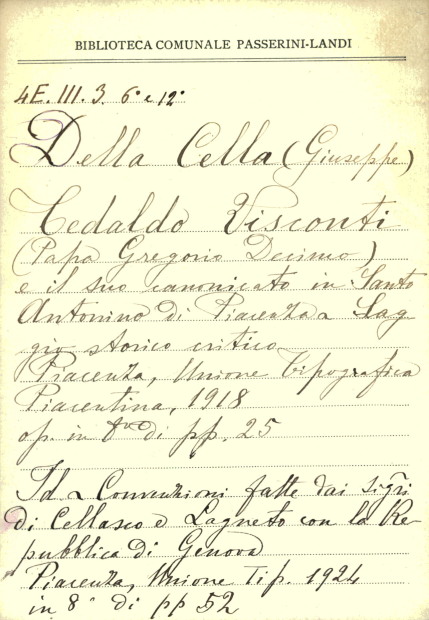 BIBLIOTECA COMUNALE PASSERINI-LANDI
4E. III. 3. 6° e 12°
Della Cella (Giuseppe)
Tedaldo Visconti
(Papa Gregorio Decimo)
e il suo canonicato in Santo
Antonino di Piacenza - Sag
gio storico critico -
Piacenza, Unione Tipografica
Piacentina, 1918
op. in 8vo di pp. 25
Id - Convenzioni fatte dai sigri
di Cellasco e Lagneto con la Re
pubblica di Genova
Piacenza, Unione Tip. 1924
in 8° di pp 52